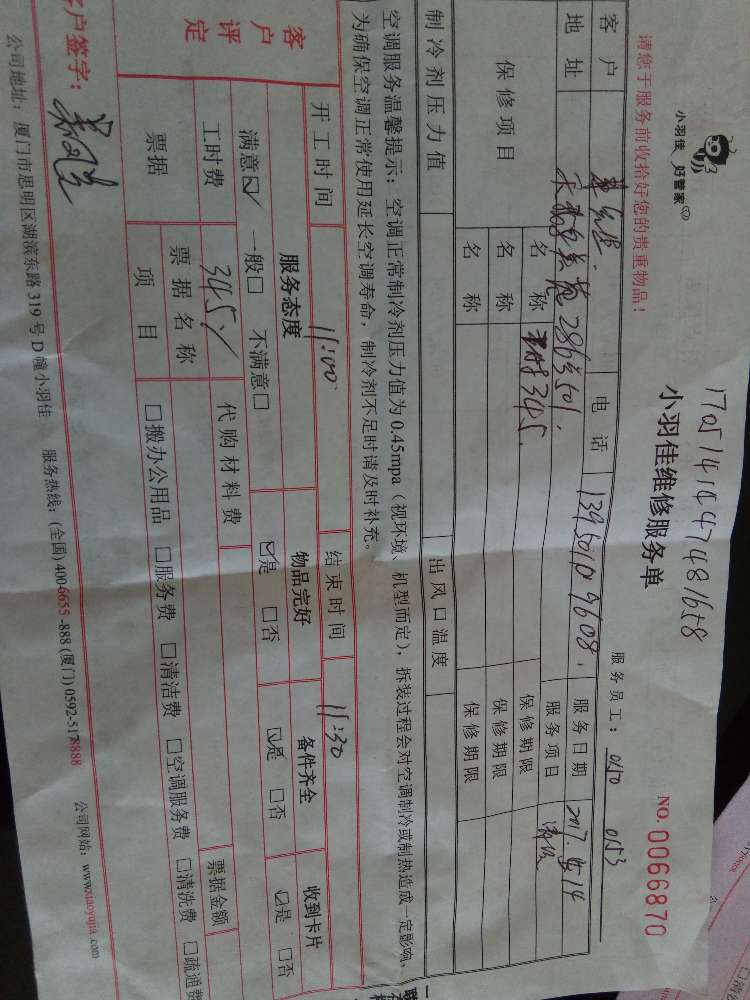 1705141447481658
小羽佳 好管家
小羽佳维修服务单
请您于服务前收拾好您的贵重物品！
服务员工： 0150 0153
NO. 0066870
客户 电话 13950109608 服务日期 2017. 14
地址 286号501 服务项目
保修项目 名称 345 保修期限
名称 保修期限
名称 保修期限
制冷剂压力值 出风口温度
空调服务温馨提示：空调正常制冷剂压力值为0.45mpa（视环境、机型而定），拆装过程会对空调制冷或制热造成一定影响，
为确保空调正常使用延长空调寿命，制冷剂不足时请及时补充。
开工时间 11:00 结束时间 11:30
客户评定 服务态度 物品完好 备件齐全 收到卡片
满意☑ 一般□ 不满意□ ☑是 □否 ☑是 □否 ☑是 □否
工时费 345 代购材料费
票据 票据名称 票据金额
项目 □搬办公用品 □服务费 □清洁费 □空调服务费 □清洗费 □疏通费
客户签字：
公司地址：厦门市思明区湖滨东路319号D幢小羽佳 服务热线：(全国) 400-6655-888 (厦门) 0592-5178888 公司网站：www.xiaoyujia.com